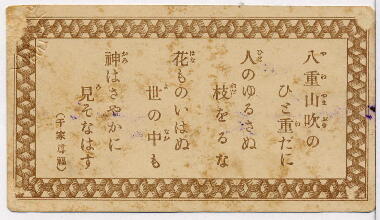 八重山吹の
ひと重だに
人のゆるさぬ
枝をるな
花ものいはぬ
世の中も
神はさやかに
見そなはす
(千家尊福)